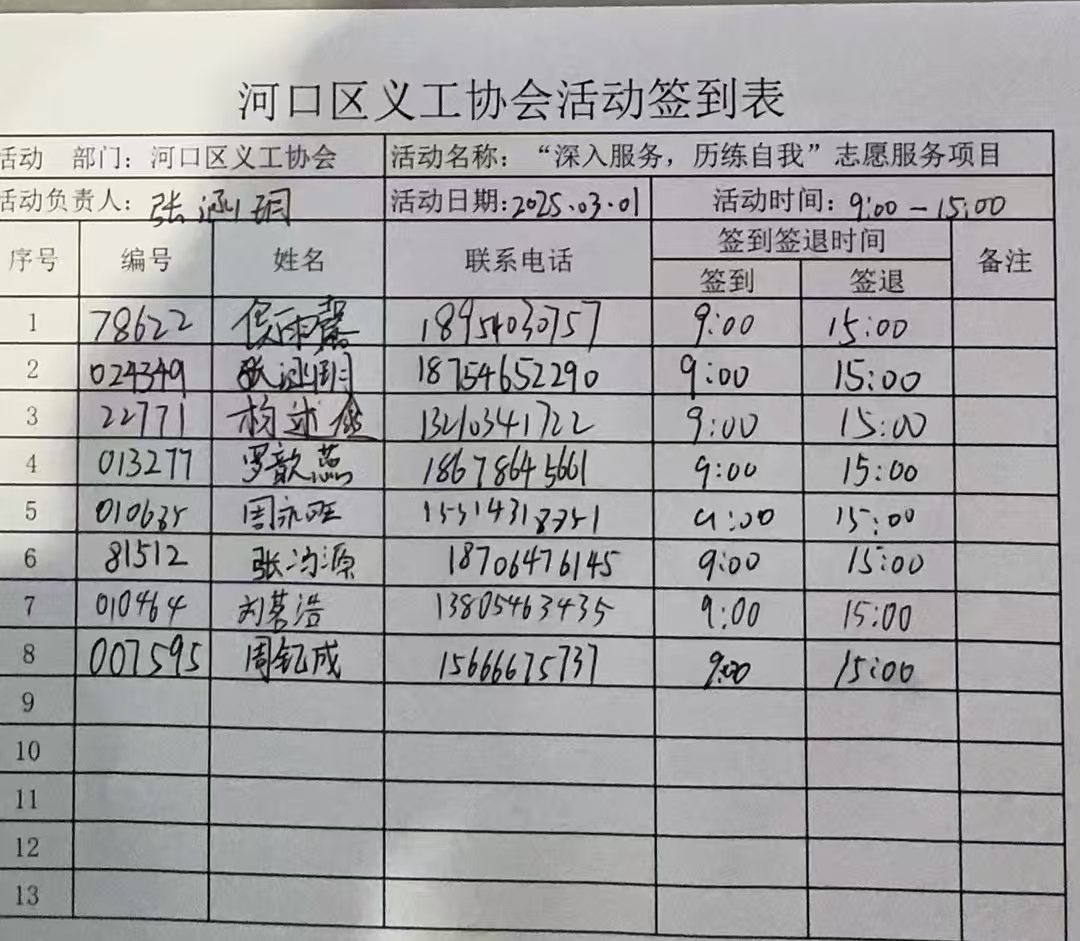 河口区义工协会活动签到表
活动 部门：河口区义工协会 活动名称：“深入服务，历练自我”志愿服务项目
活动负责人：张涵玥 活动日期：2025.03.01 活动时间：9:00-15:00
序号 编号 姓名 联系电话 签到签退时间 备注
签到 签退
1 78622 侯雨馨 18954030757 9:00 15:00
2 024349 张涵玥 18754652290 9:00 15:00
3 22771 杨述 13210341722 9:00 15:00
4 013277 罗歆蕊 18678645661 9:00 15:00
5 周永旺 9:00 15:00
6 81512 张 源 18706476145 9:00 15:00
7 010464 刘茗浩 13805463435 9:00 15:00
8 007595 周钇成 15666675737 9:00 15:00
9
10
11
12
13